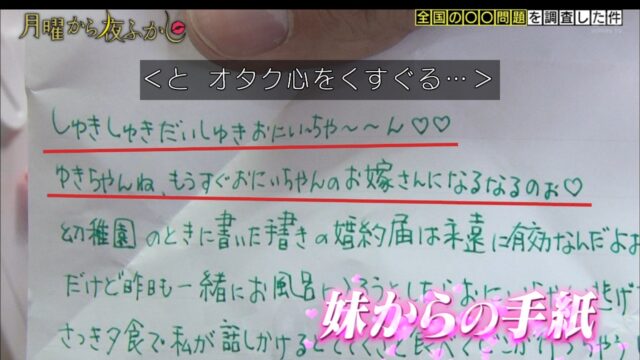 月曜から夜ふかし
全国の〇〇問題を調査した件
<と オタク心をくすぐる…>
しゅきしゅきだいしゅきおにぃーちゃ〜〜ん♡♡
ゆきちゃんね、もうすぐおにいちゃんのお嫁さんになるなるのぉ♡
幼稚園のときに書いた手書きの婚約届は永遠に有効なんだよぉ
だけど昨日も一緒にお風呂に
妹からの手紙
さっき夕食で私が話しかけると